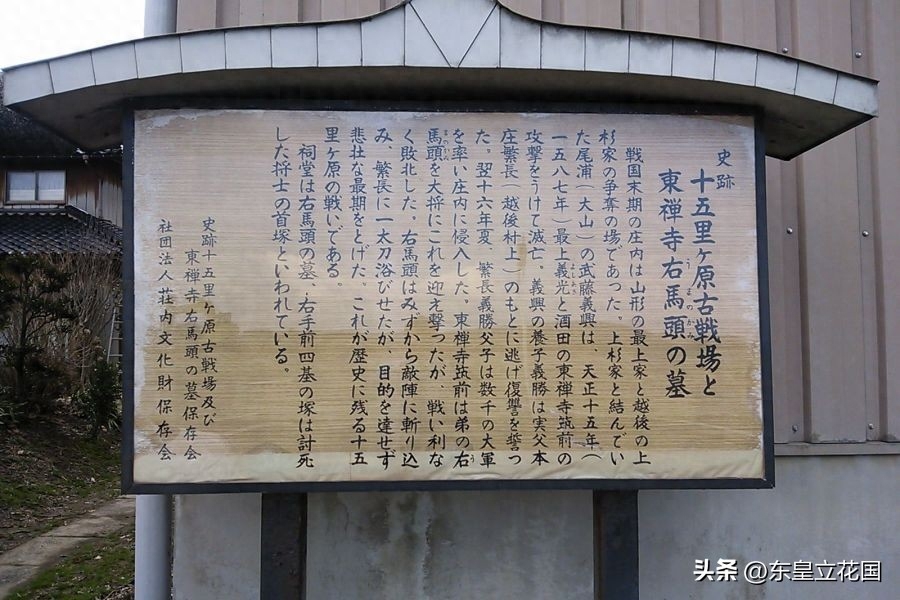 史跡
十五里ヶ原古戦場と
東禅寺右馬頭の墓
うまのかみ
戦国末期の庄内は山形の最上家と越後の上
杉家の争奪の場であった。上杉家と結んでい
た尾浦(大山)の武藤義興は、天正十五年(
一五八七年)最上義光と酒田の東禅寺筑前の
攻撃をうけて滅亡。義興の養子義勝は実父本
庄繁長(越後村上)のもとに逃げ復讐を誓っ
た。翌十六年夏 繁長義勝父子は数千の大軍
を率い庄内に侵入した。東禅寺筑前は弟の右
馬頭を大将にこれを迎え撃ったが、戦い利な
く敗北した。右馬頭はみずから敵陣に斬り込
み、繁長に一太刀浴びせたが、目的を達せず
悲壮な最期をとげた。これが歴史に残る十五
里ヶ原の戦いである。
祠堂は右馬頭の墓、右手前四基の塚は討死
した将士の首塚といわれている。
史跡十五里ヶ原古戦場及び
東禅寺右馬頭の墓保存会
社団法人荘内文化財保存会
头条 @东皇立花国